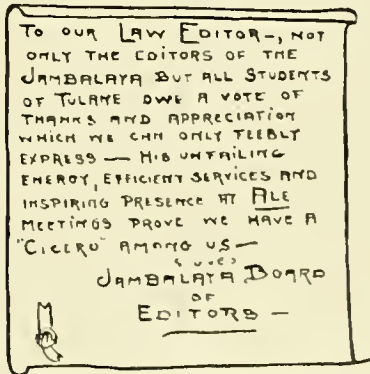 TO OUR LAW EDITOR—, NOT
ONLY THE EDITORS OF THE
JAMBALAYA BUT ALL STUDENTS
OF TULANE OWE A VOTE OF
THANKS AND APPRECIATION
WHICH WE CAN ONLY FEEBLY
EXPRESS — HIS UNFAILING
ENERGY, EFFICIENT SERVICES AND
INSPIRING PRESENCE AT ALE
MEETINGS PROVE WE HAVE A
"CICERO" AMONG US —
JAMBALAYA BOARD
OF
EDITORS —